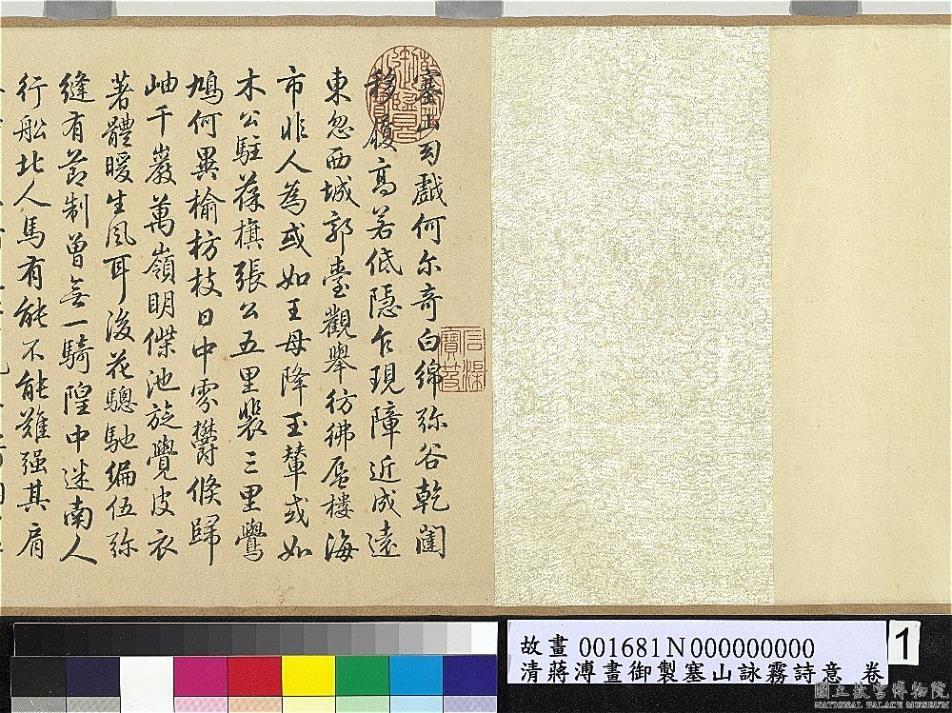 塞山幻戲何尓奇白綿弥谷乾闥
移履高若低隱乍現障近成遠
東忽西城郭臺觀舉彷彿蜃樓海
市非人為或如王母降玉輦或如
木公駐葆旗張公五里裴三里鷽
鳩何異榆枋枝日中雰欝倐歸
岫千巖萬嶺明僸池旋覺皮衣
著體暖生風耳後花驄馳編伍弥
縫有節制曾無一騎隍中迷南人
行船北人馬有能不能難强其肩
信溪
寶笈
故畫 001681N000000000
清蔣溥畫御製塞山詠霧詩意 卷
1
國立故宮博物院
NATIONAL PALACE MUSEUM